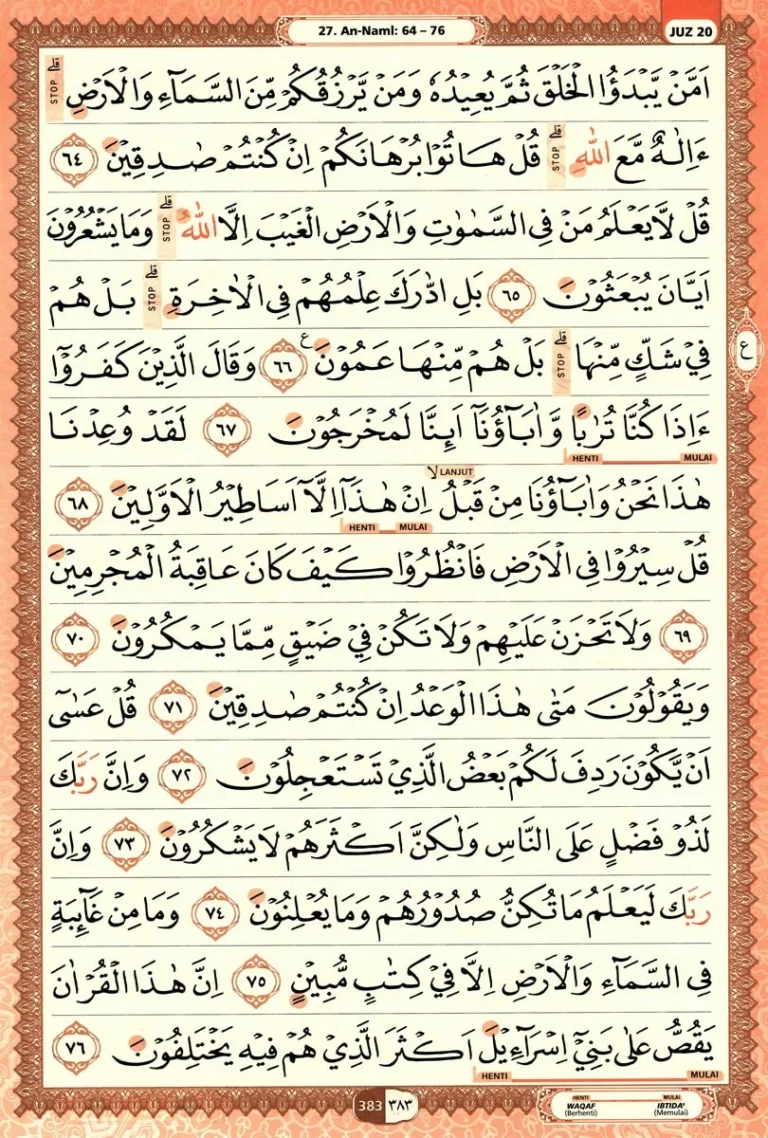 27. An-Naml: 64 – 76
JUZ 20
اَمَّنْ يَّبْدَؤُا الْخَلْقَ ثُمَّ يُعِيْدُهٗ وَمَنْ يَّرْزُقُكُمْ مِّنَ السَّمَاۤءِ وَالْاَرْضِۗ STOP
ءَاِلٰهٌ مَّعَ اللّٰهِ ۗ STOP قُلْ هَاتُوْا بُرْهَانَكُمْ اِنْ كُنْتُمْ صٰدِقِيْنَ ٦٤
قُلْ لَّا يَعْلَمُ مَنْ فِى السَّمٰوٰتِ وَالْاَرْضِ الْغَيْبَ اِلَّا اللّٰهُ ۗ STOP وَمَا يَشْعُرُوْنَ
اَيَّانَ يُبْعَثُوْنَ ٦٥ بَلِ ادّٰرَكَ عِلْمُهُمْ فِى الْاٰخِرَةِۗ STOP بَلْ هُمْ
فِيْ شَكٍّ مِّنْهَاۗ STOP بَلْ هُمْ مِّنْهَا عَمُوْنَ ع ٦٦ وَقَالَ الَّذِيْنَ كَفَرُوْٓا
ءَاِذَا كُنَّا تُرٰبًا وَّاٰبَاۤؤُنَآ اَىِٕنَّا لَمُخْرَجُوْنَ ٦٧ لَقَدْ وُعِدْنَا
MULAI HENTI
LANJUT
هٰذَا نَحْنُ وَاٰبَاۤؤُنَا مِنْ قَبْلُ ۙ اِنْ هٰذَآ اِلَّآ اَسَاطِيْرُ الْاَوَّلِيْنَ ٦٨
MULAI HENTI
قُلْ سِيْرُوْا فِى الْاَرْضِ فَانْظُرُوْا كَيْفَ كَانَ عَاقِبَةُ الْمُجْرِمِيْنَ
٦٩ وَلَا تَحْزَنْ عَلَيْهِمْ وَلَا تَكُنْ فِيْ ضَيْقٍ مِّمَّا يَمْكُرُوْنَ ٧٠
وَيَقُوْلُوْنَ مَتٰى هٰذَا الْوَعْدُ اِنْ كُنْتُمْ صٰدِقِيْنَ ٧١ قُلْ عَسٰٓى
اَنْ يَّكُوْنَ رَدِفَ لَكُمْ بَعْضُ الَّذِيْ تَسْتَعْجِلُوْنَ ٧٢ وَاِنَّ رَبَّكَ
لَذُوْ فَضْلٍ عَلَى النَّاسِ وَلٰكِنَّ اَكْثَرَهُمْ لَا يَشْكُرُوْنَ ٧٣ وَاِنَّ
رَبَّكَ لَيَعْلَمُ مَا تُكِنُّ صُدُوْرُهُمْ وَمَا يُعْلِنُوْنَ ٧٤ وَمَا مِنْ غَاۤىِٕبَةٍ
فِى السَّمَاۤءِ وَالْاَرْضِ اِلَّا فِيْ كِتٰبٍ مُّبِيْنٍ ٧٥ اِنَّ هٰذَا الْقُرْاٰنَ
يَقُصُّ عَلٰى بَنِيْٓ اِسْرَاۤءِيْلَ اَكْثَرَ الَّذِيْ هُمْ فِيْهِ يَخْتَلِفُوْنَ ٧٦
MULAI HENTI
ع
383 ٣٨٣
HENTI MULAI
WAQAF IBTIDA'
(Berhenti) (Memulai)